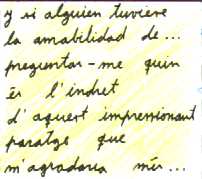 y si alguien tuviere
la amabilidad de...
preguntar-me quin
és l'indret
d'aquest impressionant
paratge que
m'agradaria més...